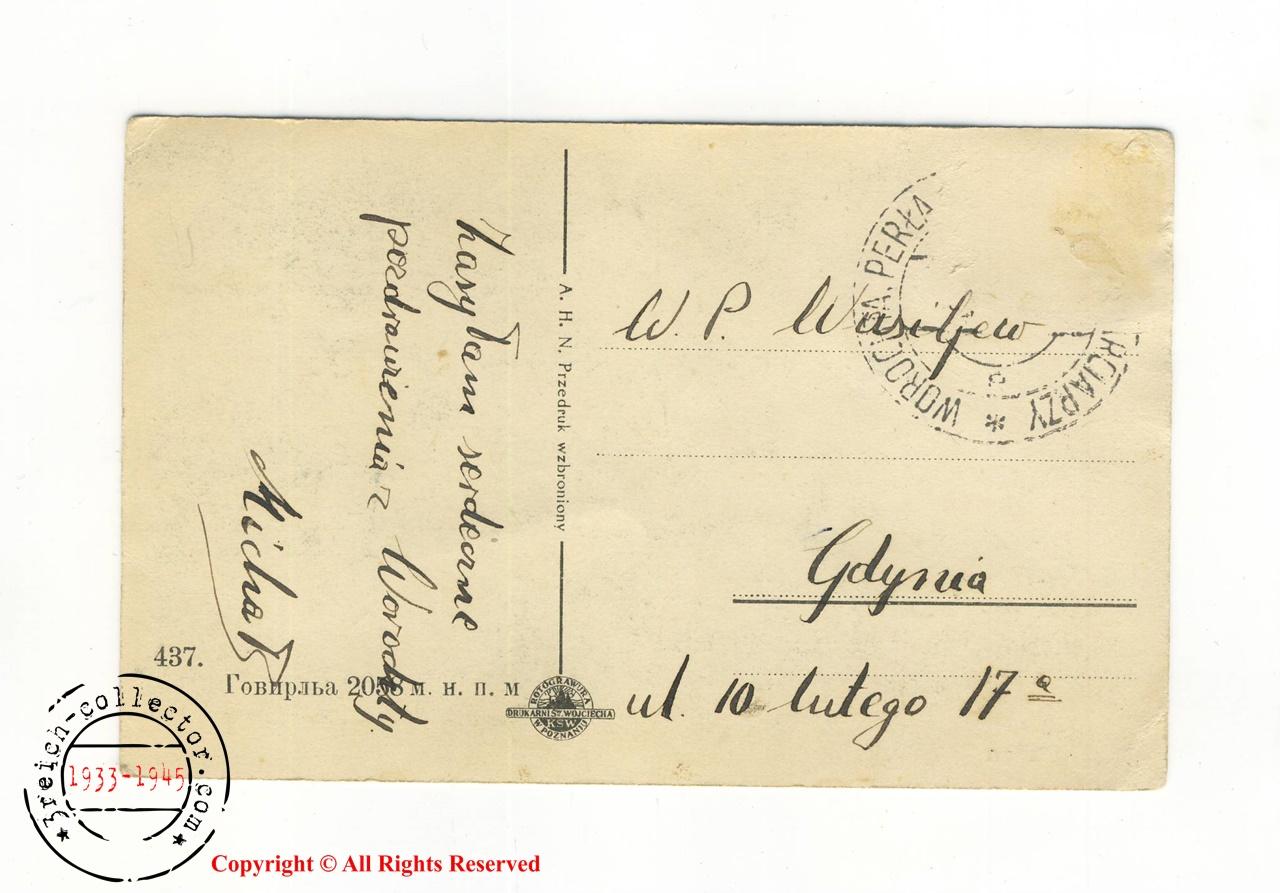 Zasyłam serdeczne
pozdrowienia z Worochty.
Michał
437.
Говирльа 2058 м. н. п. м
A. H. N. Przedruk wzbroniony
ROTOGRAWURA
DRUKARNI ŚW. WOJCIECHA
KSW
W POZNANIU
WOROCHTA. PERŁA
* 
W. P. Wasiljew
Gdynia
ul. 10 lutego 17a
3reich-collector.com
1933-1945
Copyright © All Rights Reserved